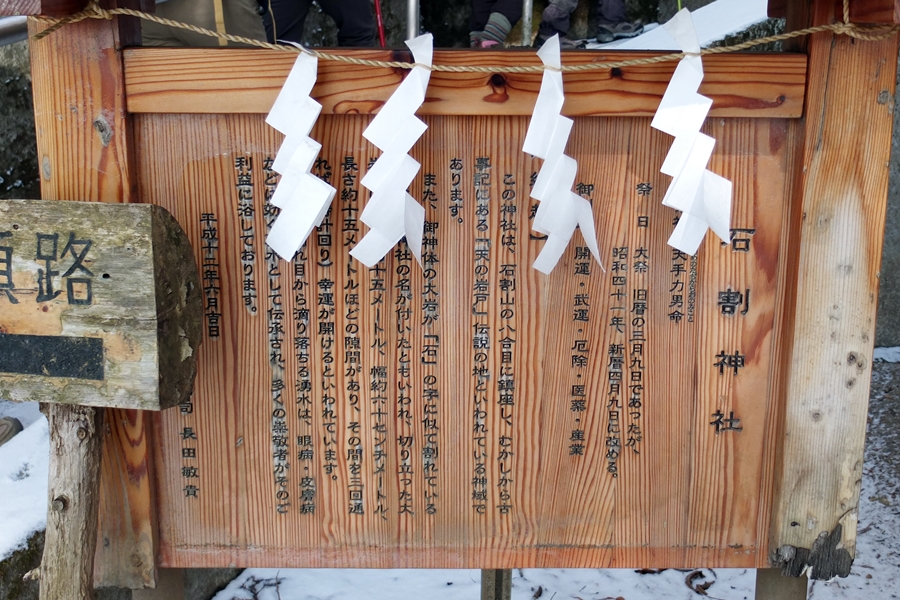 石割神社
天手力男命
祭 日 大祭 旧暦の三月九日であったが、
昭和四十一年、新暦四月九日に改める。
御 開運・武運・厄除・医薬・産業
この神社は、石割山の八合目に鎮座し、むかしから古
事記にある「天の岩戸」伝説の地といわれている神域で
あります。
また、御神体の大岩が、「石」の字に似て割れている
社の名が付いたともいわれ、切り立った大
十五メートル、幅約六十センチメートル、
長さ約十五メートルほどの隙間があり、その間を三回通
れば 計回り）幸運が開けるといわれています。
れ目から滴り落ちる湧水は、眼病・皮膚病
などに効く 水として伝承され、多くの崇敬者がそのご
利益に浴しております。
平成十二年六月吉日
司 長田敏貴
路